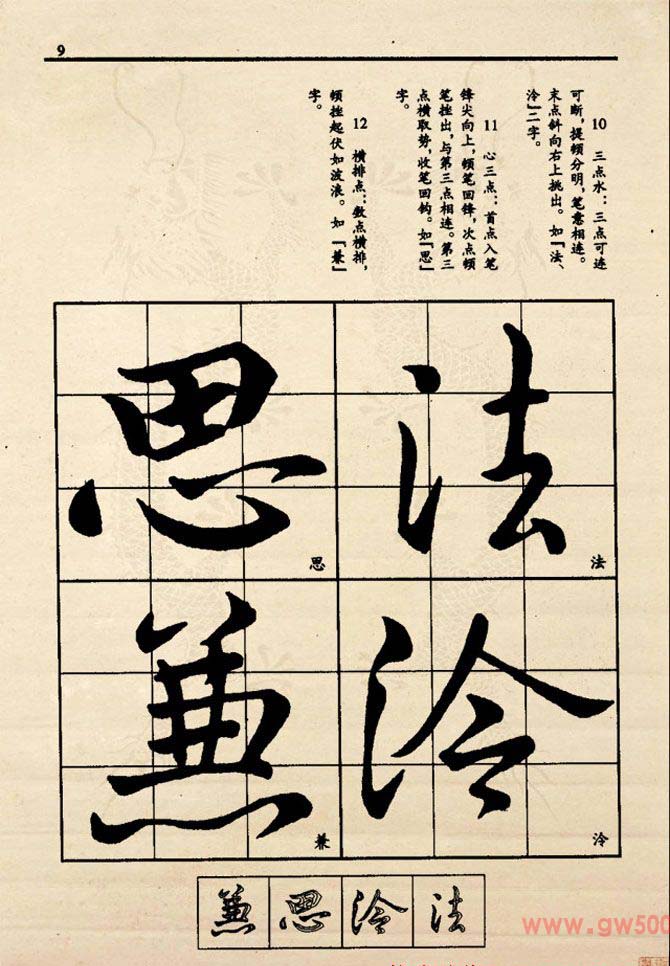 9
10 三点水:三点可连
可断,提顿分明,笔意相连。
末点斜向右上挑出。如「法、
泠」二字。
11 心三点:首点入笔
锋尖向上,顿笔回锋,次点顿
笔挫出,与第三点相连。第三
点横取势,收笔回钩。如「思」
字。
12 横排点:数点横排,
顿挫起伏如波浪。如「兼」
字。
法
法
泠
泠
思
思
兼
兼
法
泠
思
兼
www.gw500